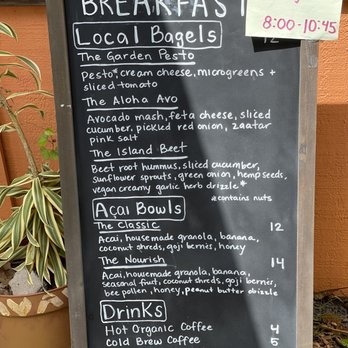 BREAKFAST
8:00-10:45
Local Bagels 12
The Garden Pesto
Pesto*, cream cheese, microgreens +
sliced tomato
The Aloha Avo
Avocado mash, feta cheese, sliced
cucumber, pickled red onion, zaatar
pink salt
The Island Beet
Beet root hummus, sliced cucumber,
sunflower sprouts, green onion, hemp seeds,
vegan creamy garlic herb drizzle*
*contains nuts
Açai Bowls
The Classic 12
Acai, housemade granola, banana,
coconut shreds, goji berries, honey
The Nourish 14
Acai, housemade granola, banana,
seasonal fruit, coconut shreds, goji berries,
bee pollen, honey, peanut butter drizzle
Drinks
Hot Organic Coffee 4
Cold Brew Coffee 5